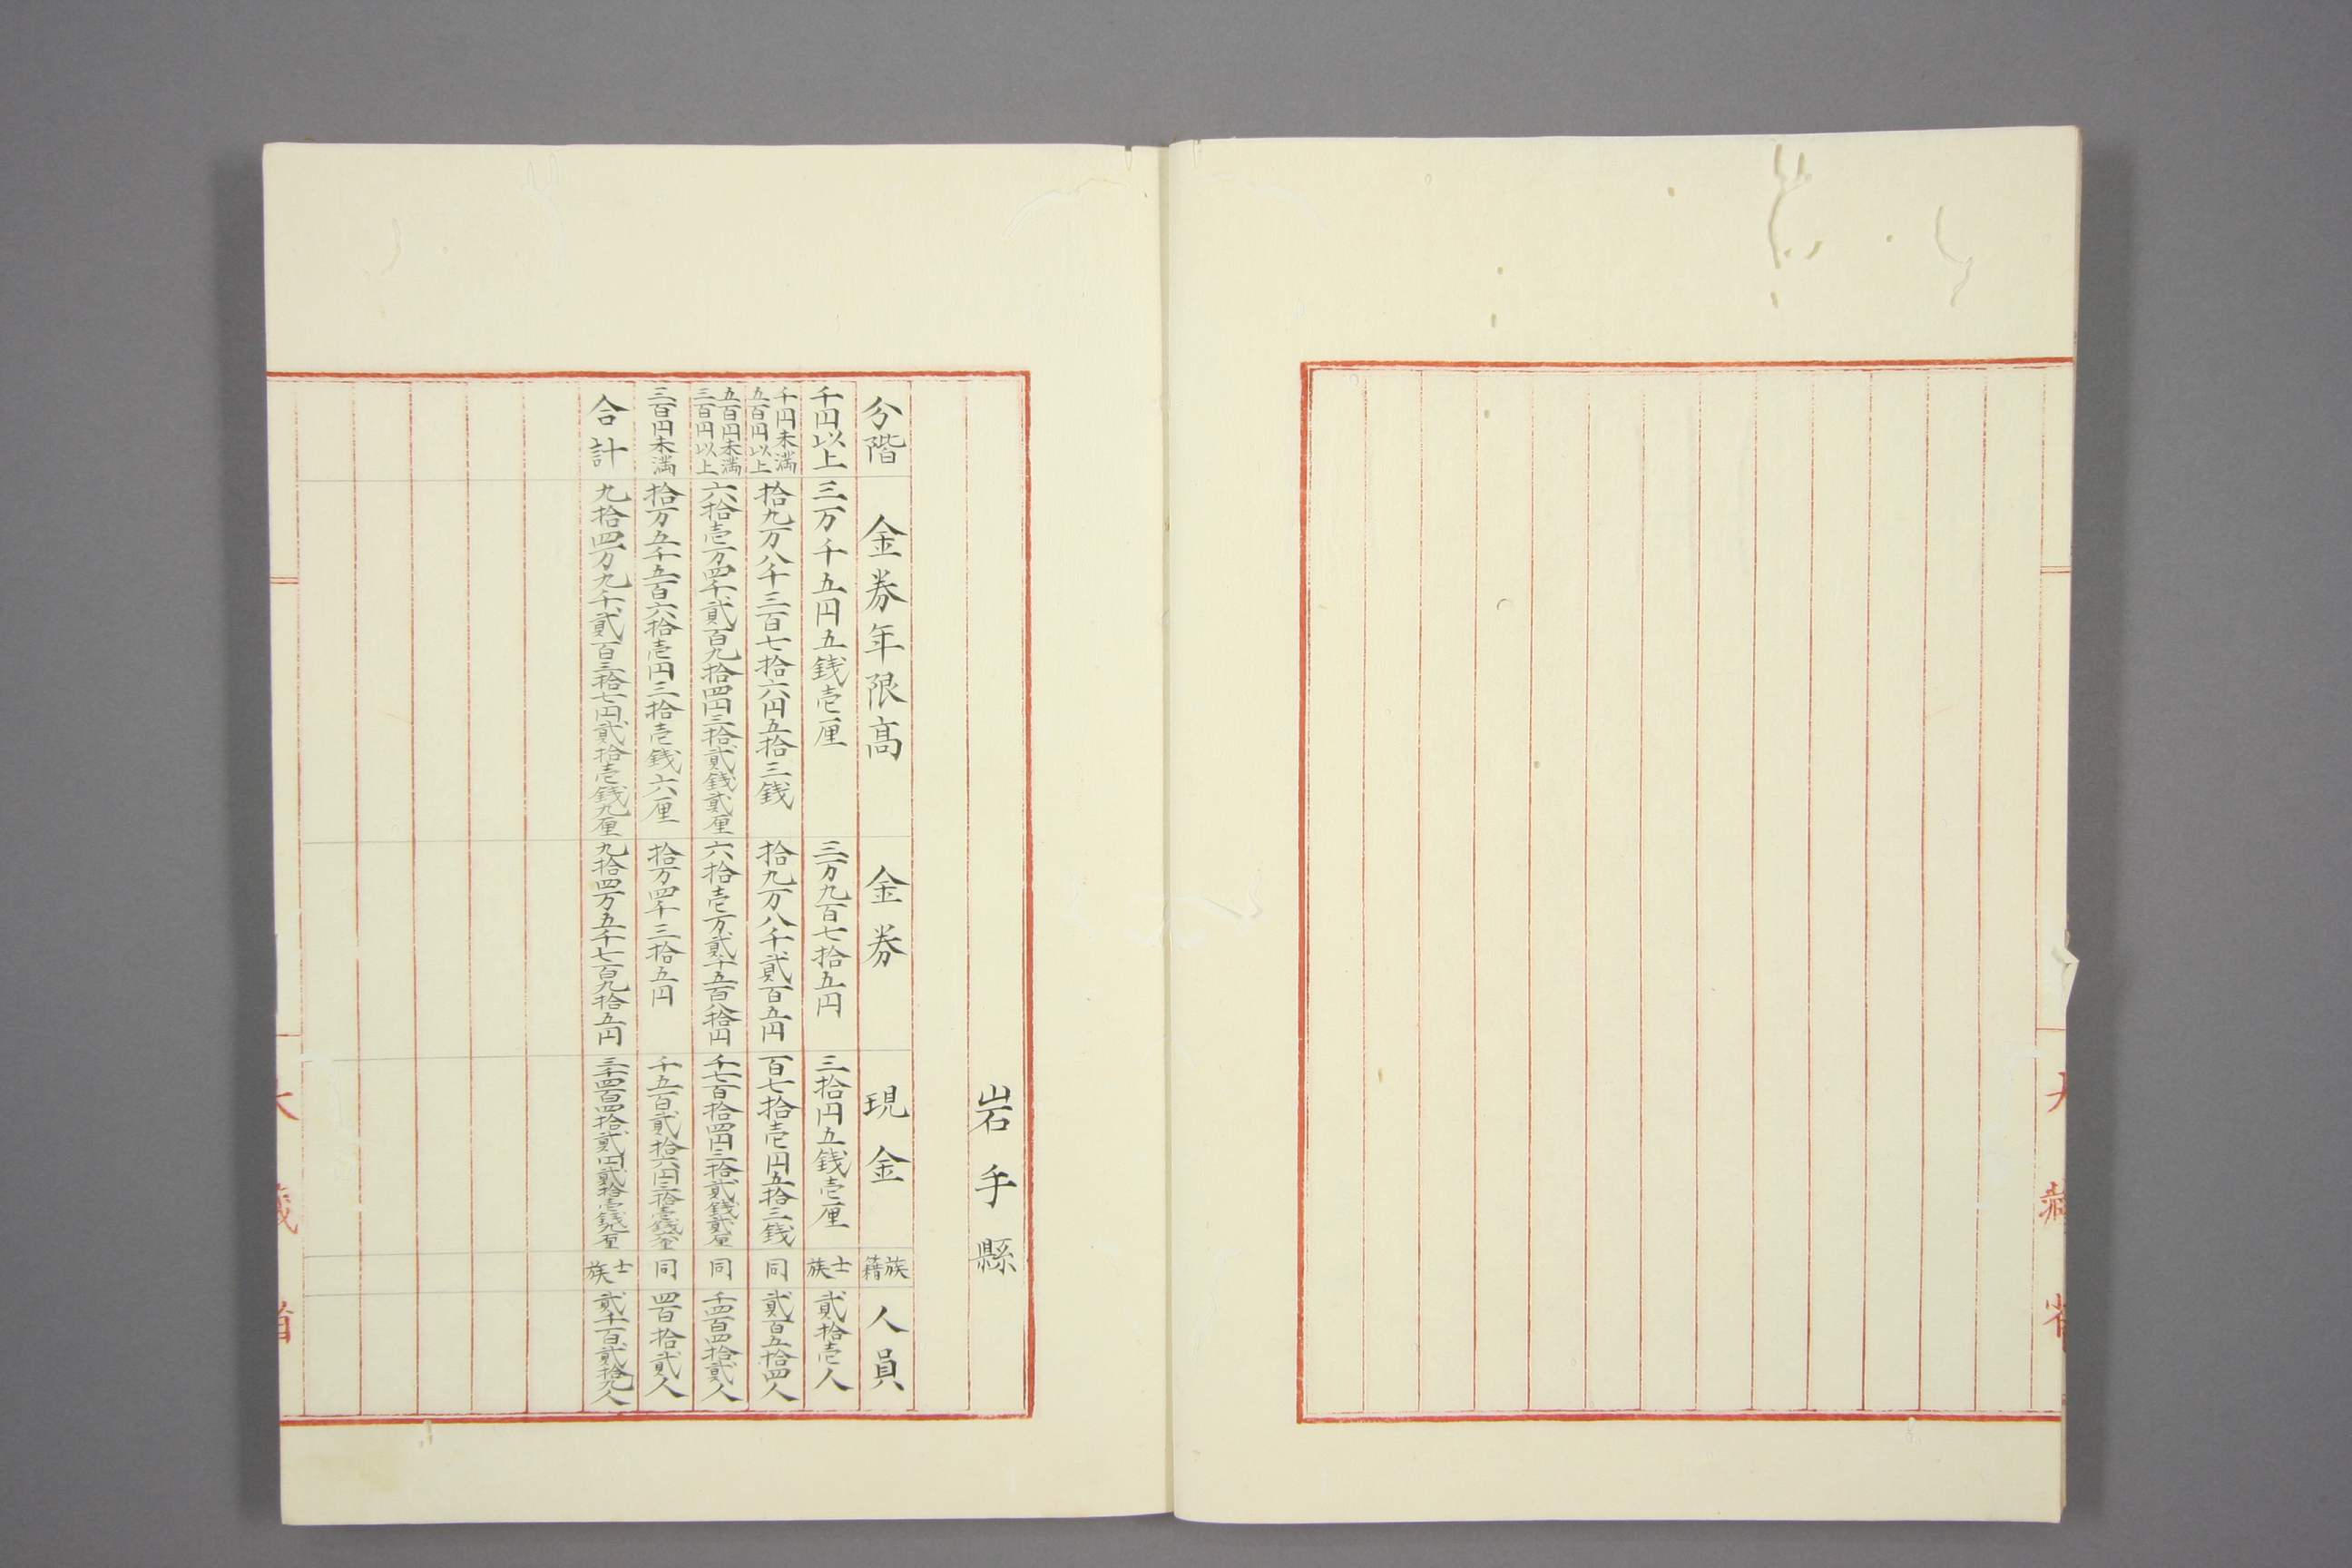 岩手縣
分階 金券年限高 金券 現金 族籍 人員
千円以上 三万千五円五銭壱厘 三万九百七拾五円 三拾円五銭壱厘 士族 貳拾壱人
千円未満五百円以上 拾九万八千三百七拾六円五拾三銭 拾九万八千貳百五円 百七拾壱円五拾三銭 同 貳百五拾四人
五百円未満三百円以上 六拾壱万四千貳百九拾四円三拾貳銭貳厘 六拾壱万貳千五百八拾円 千七百拾四円三拾貳銭貳厘 同 千四百四拾貳人
三百円未満 拾万五千五百六拾壱円三拾壱銭六厘 拾万四千三拾五円 千五百貳拾六円三拾壱銭六厘 同 四百拾貳人
合計 九拾四万九千貳百三拾七円貳拾壱銭九厘 九拾四万五千七百九拾五円 三千四百四拾貳円貳拾壱銭九厘 士族 貳千百貳拾九人